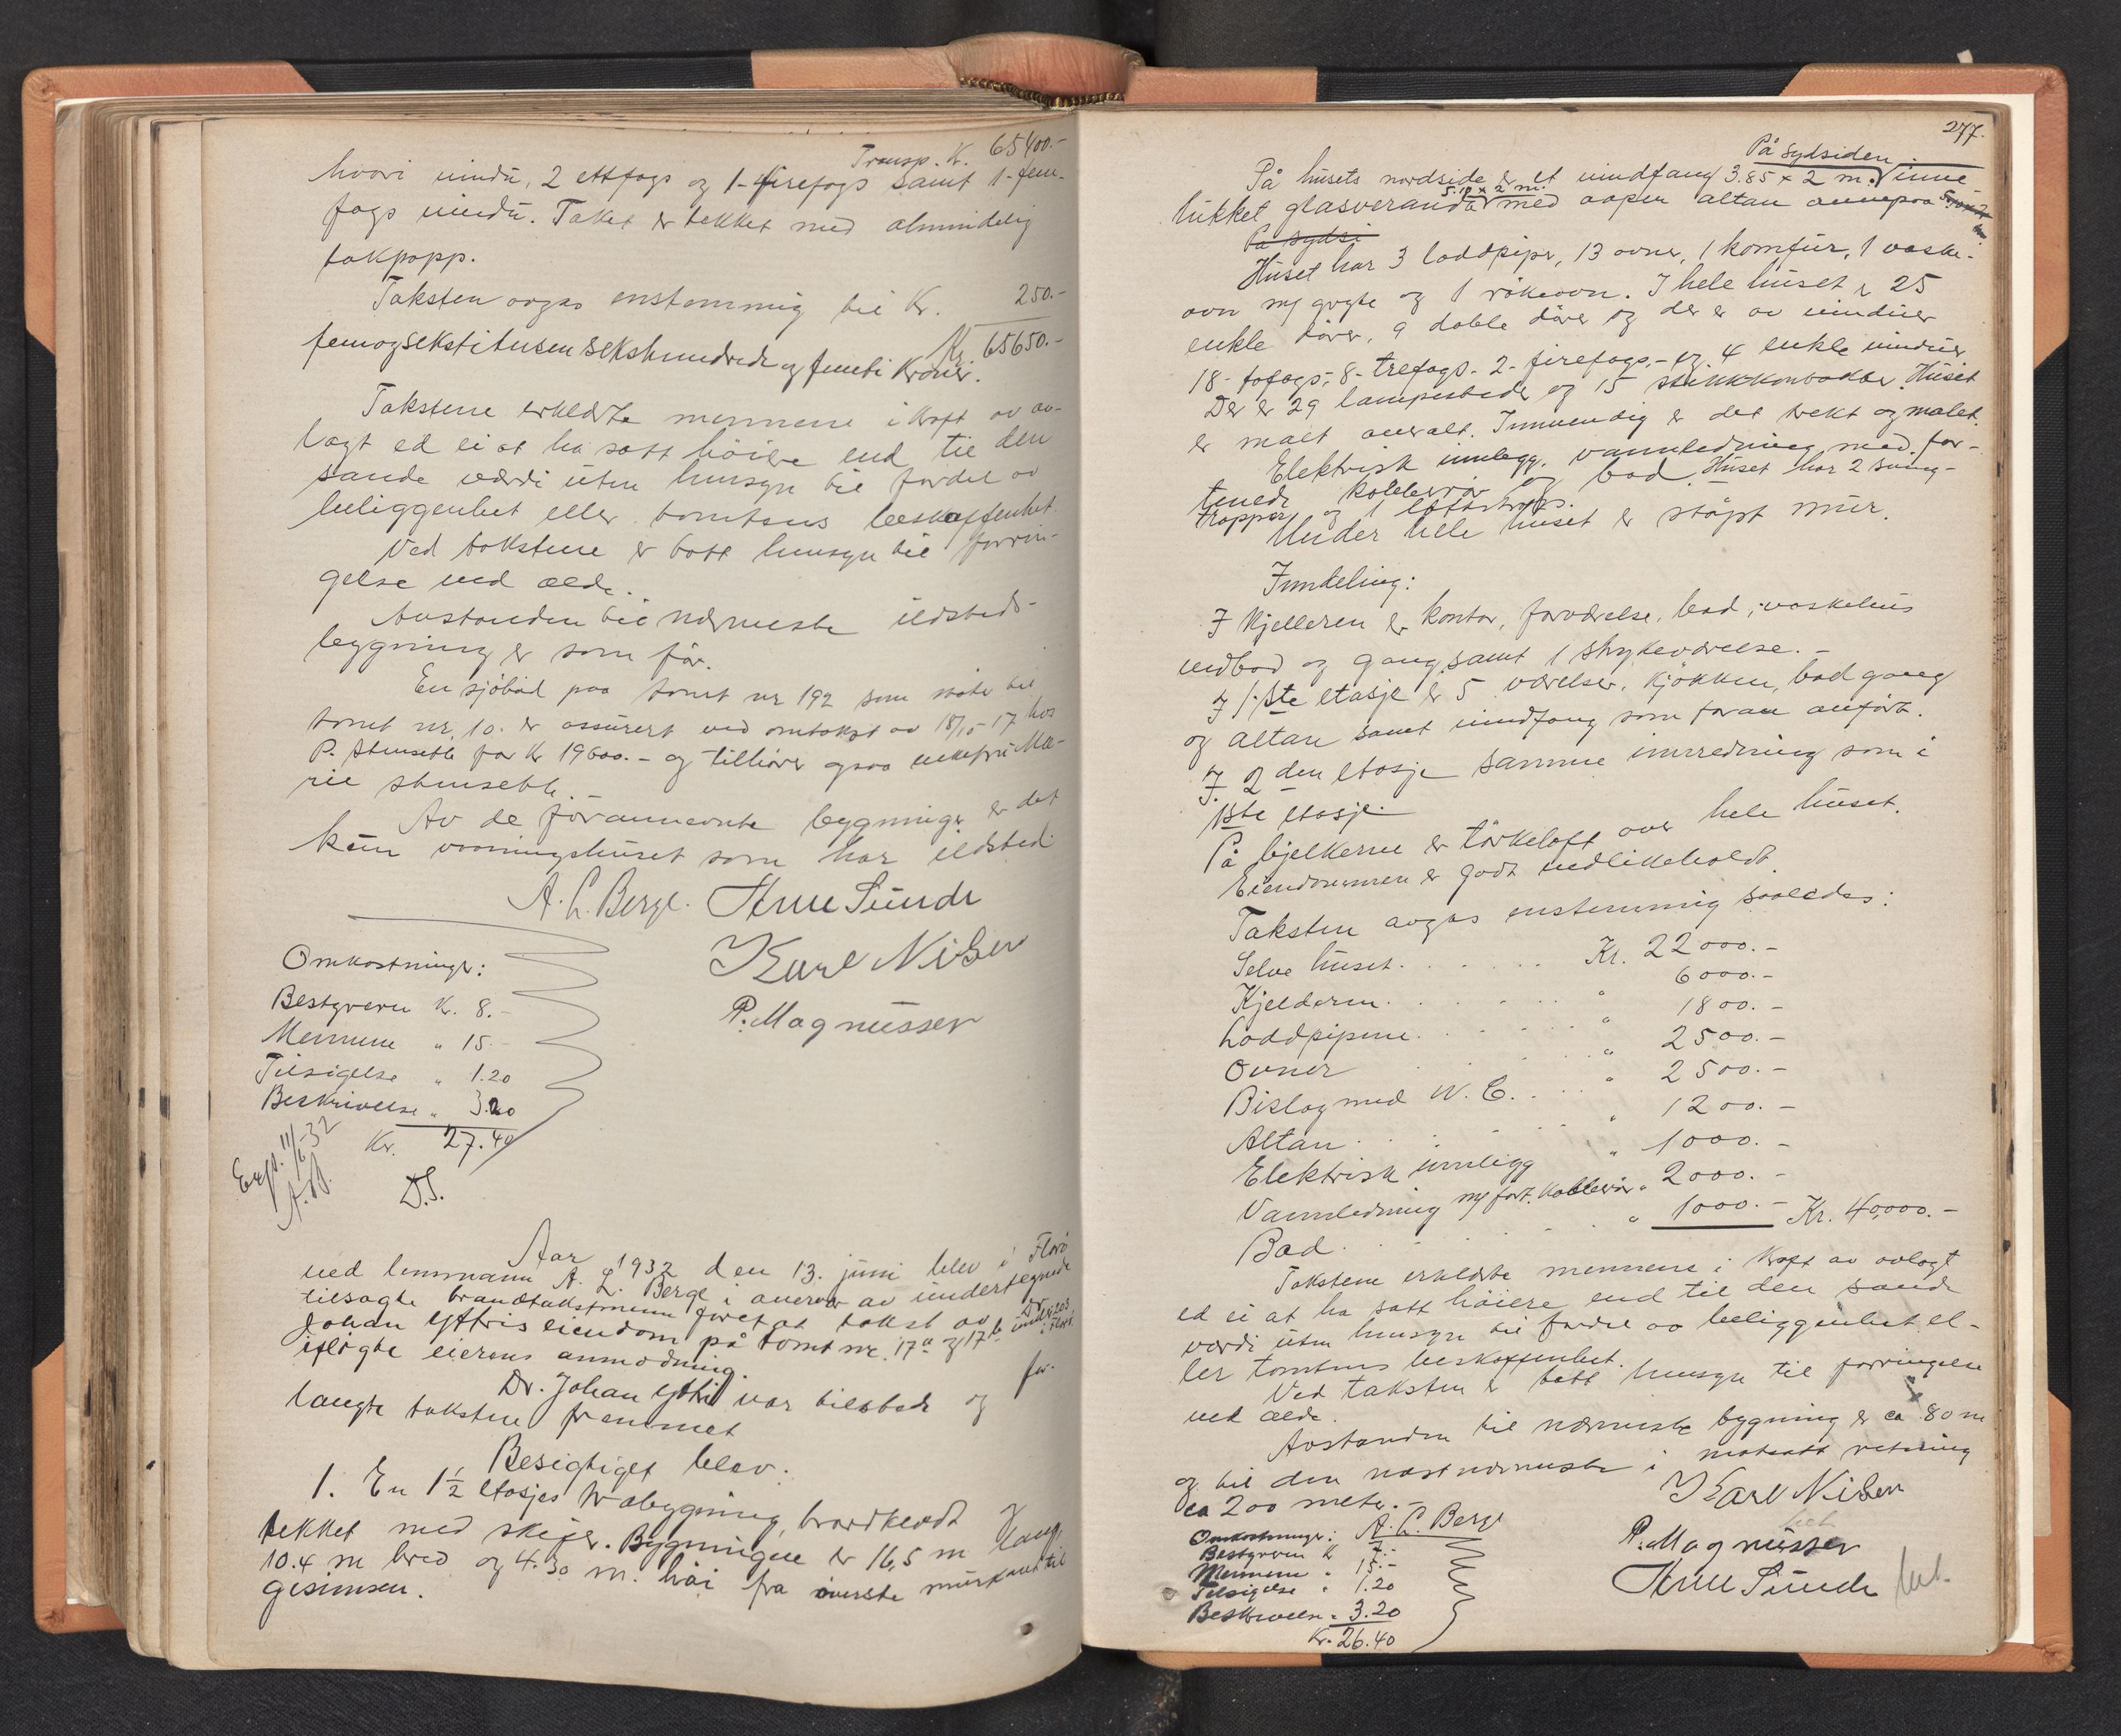 Transp. K. 65400.-
hvori vindu, 2 ettfags og 1-firefags samt 1-fem-
fags vindu. Taket er tekket med almindelig
takpapp.
Taksten avgas enstemmig til Kr. 250.-
Kr. 65650.-
femogsekstitusen sekshundrede og femti Kroner.
Takstene erklærte mennene i kraft av av-
lagt ed ei at ha satt høiere end til den
sande værdi uten hensyn til fordel av
beliggenhet eller tomtens beskaffenhet.
Ved takstene er tatt hensyn til forrin-
gelse ved ælde.
Avstanden til nærmeste ildsteds-
bygning er som før.
En sjøbod paa tomt nr 192 som støter til
tomt nr. 10. er assurert ved omtakst av 18/10-17 hos
P. Stensett for Kr 19600.- og tilhører ogsaa enkefru Ma-
rie Stensett.
Av de forannevnte bygninger er det
kun vaaningshuset som har ildsted
A. L. Berge. Arne Sunde
Karl Nilsen
P. Magnussen
Omkostninger:
Bestyreren Kr. 8.-
Mennene " 15.-
Tilsigelse " 1.20
Beskrivelse " 3.20
Kr. 27.40
Exp. 11/6-32
A.B.
D.S.
Aar 1932 den 13. juni blev i Florø
ved lensmann A. L. Berge i overvær av undertegnede
tilsagte brandtakstmenn foretat takst av Dr.
Johan Ytris eiendom på tomt nr. 17a og 17b
ifølgte eierens anmodning.
Dr. Johan Ytri var tilstede og for-
langte takstene fremmet
Besigtiget blev:
1. En 1½ etasjes træbygning, bordkledt
tekket med skifer. Bygningen er 16,5 m lang,
10.4 m bred og 4.30 m. høi fra øverste murkant til
gesimsen.
277.
På sydsiden
På husets nordside er et vindfang 3.85 x 2 m. inne-
5.10 x 2 m.
lukket glasveranda med aapen altan ovenpaa
På sydsi
Huset har 3 loddpiper, 13 ovner, 1 komfur, 1 vaske-
ovn m/ gryte og 1 røkeovn. I hele huset er 25
enkle dører, 9 doble dører og der er av vinduer
18-tofags, 8-trefags. 2-firefags,- og 4 enkle vinduer.
Der er 29 lampesteder og 15 stikkontakter. Huset
er malt overalt. Innvendig er det trekt og malet.
Elektrisk innlegg, vannledning med for-
tinede kobberrør og bad. Huset har 2 sving-
trapper og 1 loftstrapp.
Under hele huset er støpt mur.
Inndeling:
I kjelleren er kontor, forværelse, bad, vaskehus
vedbod og gang samt 1 strykeværelse.-
I 1ste etasje er 5 værelser, kjøkken, bad gang
og altan samt vindfang som foran anført.
I 2den etasje samme innredning som i
1ste etasje.
På bjelkerne er tørkeloft over hele huset.
Eiendommen er godt vedlikeholdt.
Taksten avgas enstemmig saaledes:
Selve huset. . . . . . Kr. 22000.-
Kjelderen. . . . . " 6000.-
Loddpipene. . . . . " 1800.-
Ovner " 2500.-
Bislag med W. C. . . . " 2500.-
Altan . . . . " 1200.-
Elektrisk innlegg " 1000.-
Vannledning m/ fort. Kobberrør " 2000.-
Bad. . . . " 1000.- Kr. 40,000.-
Takstene erklærte mennene i kraft av avlagt
ed ei at ha satt høiere end til den sande
værdi uten hensyn til fordel av beliggenhet el-
ler tomtens beskaffenhet.
Ved taksten er tatt hensyn til forringelse
ved ælde.
Avstanden til nærmeste bygning er ca 80 m
og til den næstnærmeste i motsatt retning
ca 200 meter.-
A. L. Berge
Karl Nilsen
P. Magnussen
Arne Sunde
Omkostninger:
Bestyreren Kr 7.-
Mennene " 15.-
Tilsigelse " 1.20
Beskrivelse " 3.20
Kr. 26.40